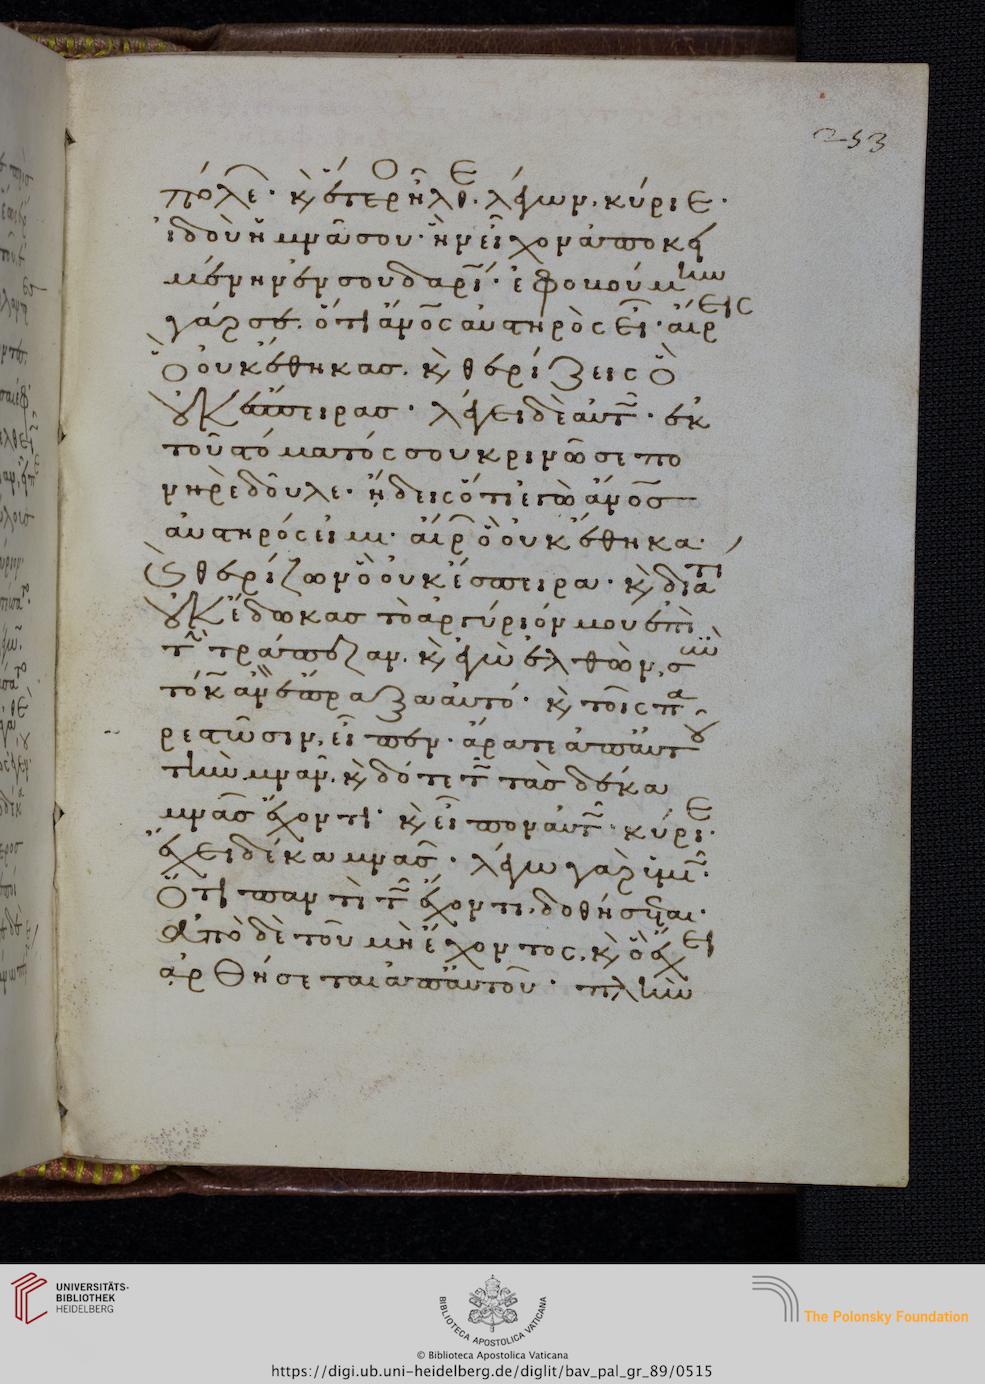 253
πόλε͂. κ̀ ἕτερο ἦλθε. λέγων. κύριε.
ἰδοὺ ἡ μνᾶ σου. ἣν εἶχον ἀποκει
μένην ἐν σουδαρί. ἐφοβούμην
γάρ σε. ὅτι ἄν͞ος αὐστηρὸς εἶ. αἴρεις
ὃ οὐκ ἔθηκας. κ̀ θερίζεις ὃ
οὐκ ἔσπειρας. λέγει δὲ αὐτ. ἐκ
τοῦ στόματός σου κρινῶ σε πο
νηρὲ δοῦλε. ᾔδεις ὅτι ἐγὼ ἄν͞ος
αὐστηρός εἰμι. αἴρ ὃ οὐκ ἔθηκα.
κ̀ θερίζων ὃ οὐκ ἔσπειρα. κ̀ διατί
οὐκ ἔδωκας τὸ ἀργύριόν μου ἐπὶ
τ τράπεζαν. κ̀ ἐγὼ ἐλθὼν, σὺν
τόκ ἂν ἔπραξα αὐτό. κ̀ τοῖς πα
ρεστῶσιν, εἶπεν. ἄρατε ἀπ' αὐτοῦ
τὴν μνᾶν. κ̀ δότε τ τὰς δέκα
μνᾶς ἔχοντι. κ̀ εἶπον αὐτ. κύριε.
ἔχει δέκα μνᾶς. λέγω γὰρ ὑμ.
ὅτι παντὶ τ ἔχοντι, δοθήσεται.
ἀπὸ δὲ τοῦ μὴ ἔχοντος, κ̀ ὃ ἔχει
ἀρθήσεται ἀπ' αὐτοῦ. πλὴν
UNIVERSITÄTS-
BIBLIOTHEK
HEIDELBERG
BIBLIOTECA APOSTOLICA VATICANA
The Polonsky Foundation
© Biblioteca Apostolica Vaticana
https://digi.ub.uni-heidelberg.de/diglit/bav_pal_gr_89/0515